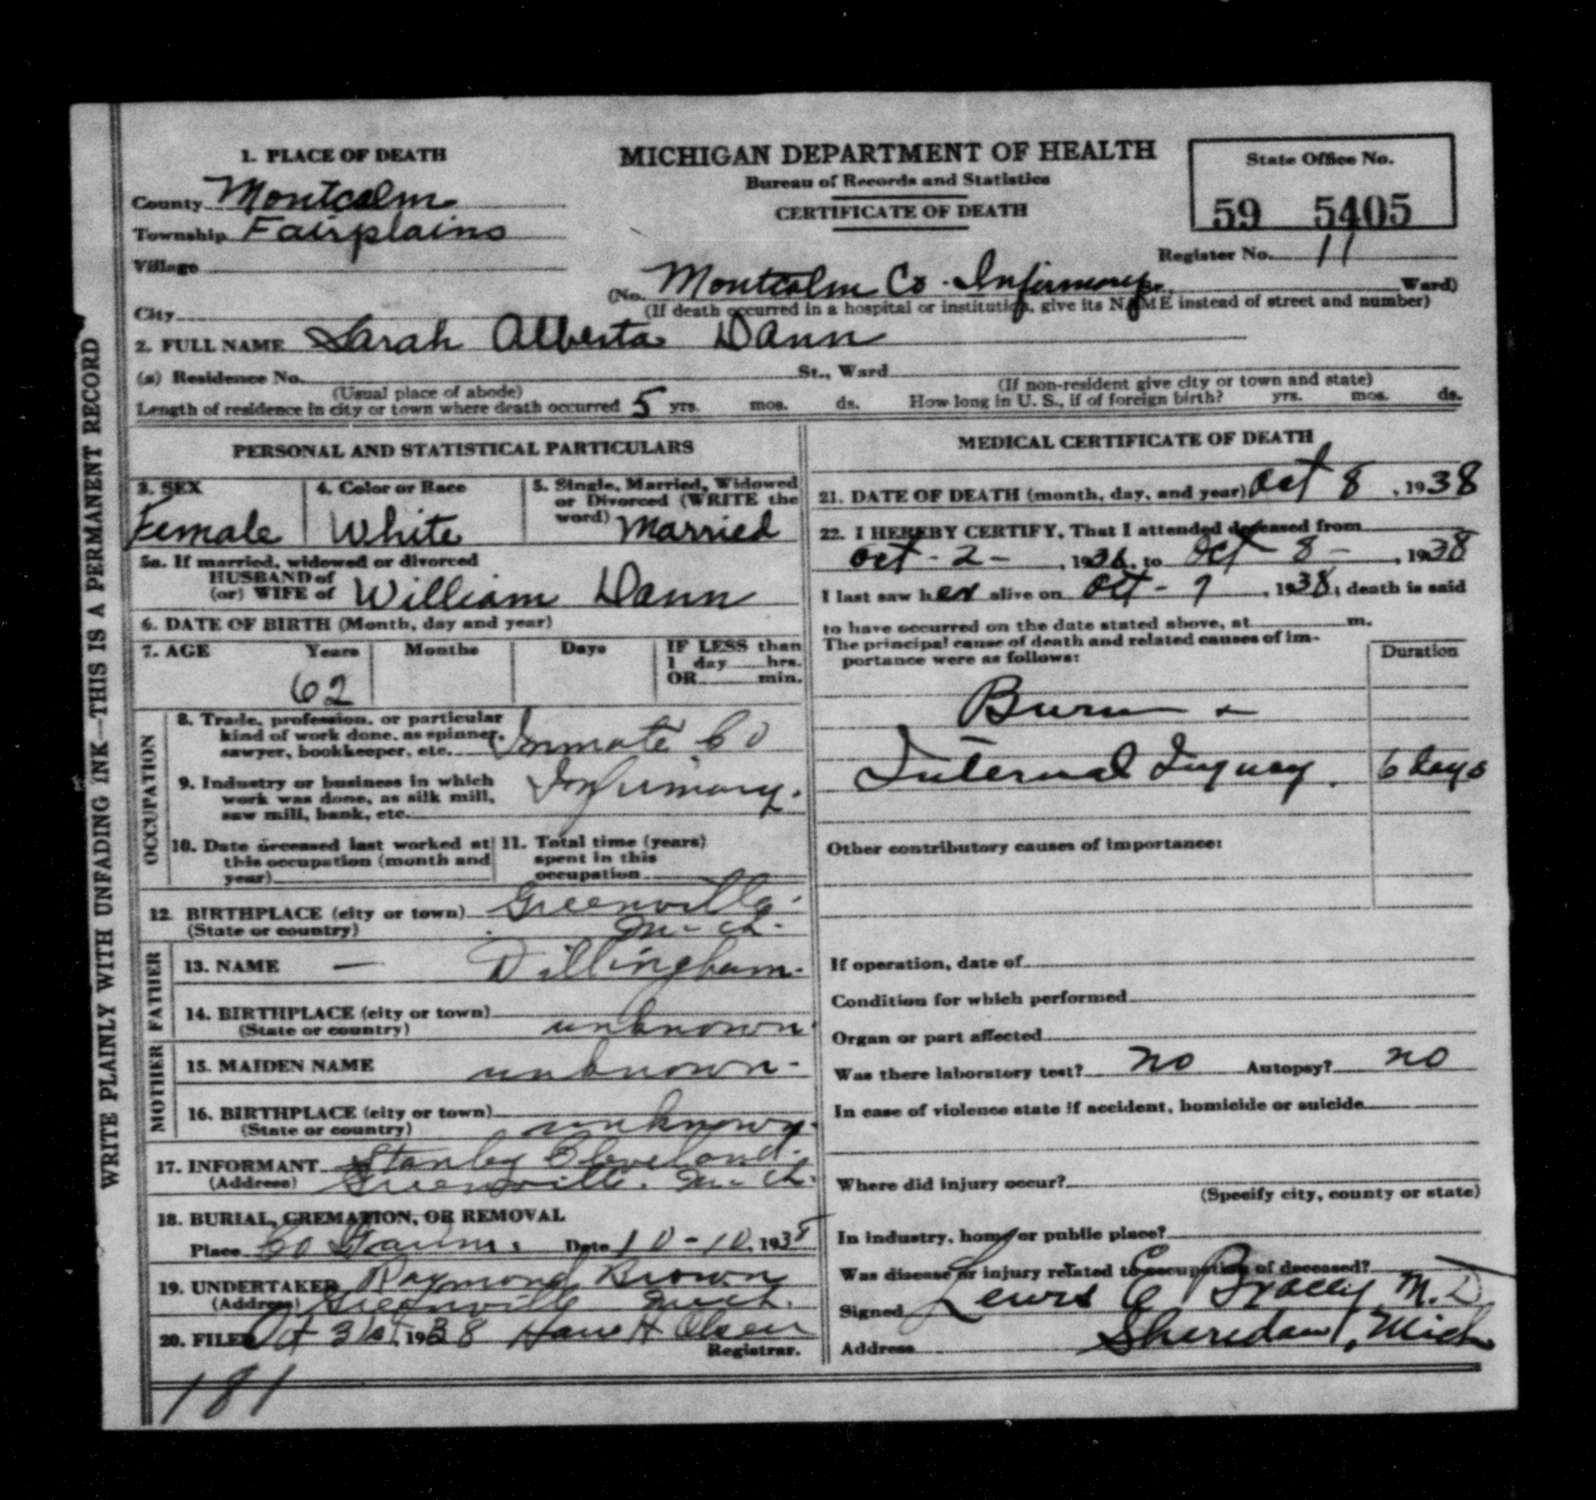 WRITE PLAINLY WITH UNFADING INK—THIS IS A PERMANENT RECORD
1. PLACE OF DEATH
County Montcalm
Township Fairplains
Village
City
MICHIGAN DEPARTMENT OF HEALTH
Bureau of Records and Statistics
CERTIFICATE OF DEATH
State Office No.
59 5405
Register No. 11
(No. Montcalm Co. Infirmary Ward)
(If death occurred in a hospital or institution, give its NAME instead of street and number)
2. FULL NAME Sarah Alberta Dann
(a) Residence No. St., Ward
(Usual place of abode) (If non-resident give city or town and state)
Length of residence in city or town where death occurred 5 yrs. mos. ds. How long in U. S., if of foreign birth? yrs. mos. ds.
PERSONAL AND STATISTICAL PARTICULARS
3. SEX
Female
4. Color or Race
White
5. Single, Married, Widowed
or Divorced (WRITE the
word) Married
5a. If married, widowed or divorced
HUSBAND of
(or) WIFE of William Dann
6. DATE OF BIRTH (Month, day and year)
7. AGE Years Months Days IF LESS than
1 day hrs.
OR min.
62
OCCUPATION
8. Trade, profession, or particular
kind of work done, as spinner,
sawyer, bookkeeper, etc. Inmate Co
9. Industry or business in which
work was done, as silk mill,
saw mill, bank, etc. Infirmary.
10. Date deceased last worked at
this occupation (month and
year)
11. Total time (years)
spent in this
occupation
12. BIRTHPLACE (city or town) Greenville
(State or country) Mich.
FATHER
13. NAME — Dillingham
14. BIRTHPLACE (city or town)
(State or country) unknown
MOTHER
15. MAIDEN NAME unknown
16. BIRTHPLACE (city or town)
(State or country) unknown
17. INFORMANT Stanley Cleveland
(Address) Greenville, Mich.
18. BURIAL, CREMATION, OR REMOVAL
Place Co Farm. Date 10-10, 1938
19. UNDERTAKER Raymond Brown
(Address) Greenville Mich.
20. FILED Oct 31st, 1938 Hans H Olsen
Registrar.
181
MEDICAL CERTIFICATE OF DEATH
21. DATE OF DEATH (month, day, and year) Oct 8, 1938
22. I HEREBY CERTIFY, That I attended deceased from
Oct - 2 -, 1936, to Oct - 8 -, 1938
I last saw her alive on Oct - 7, 1938; death is said
to have occurred on the date stated above, at m.
The principal cause of death and related causes of im-
portance were as follows:
Duration
Burn
Internal Injury. 6 days
Other contributory causes of importance:
If operation, date of
Condition for which performed
Organ or part affected
Was there laboratory test? no Autopsy? no
In case of violence state if accident, homicide or suicide
Where did injury occur?
(Specify city, county or state)
In industry, home or public place?
Was disease or injury related to occupation of deceased?
Signed Lewis E Bracey M.D
Address Sheridan, Mich